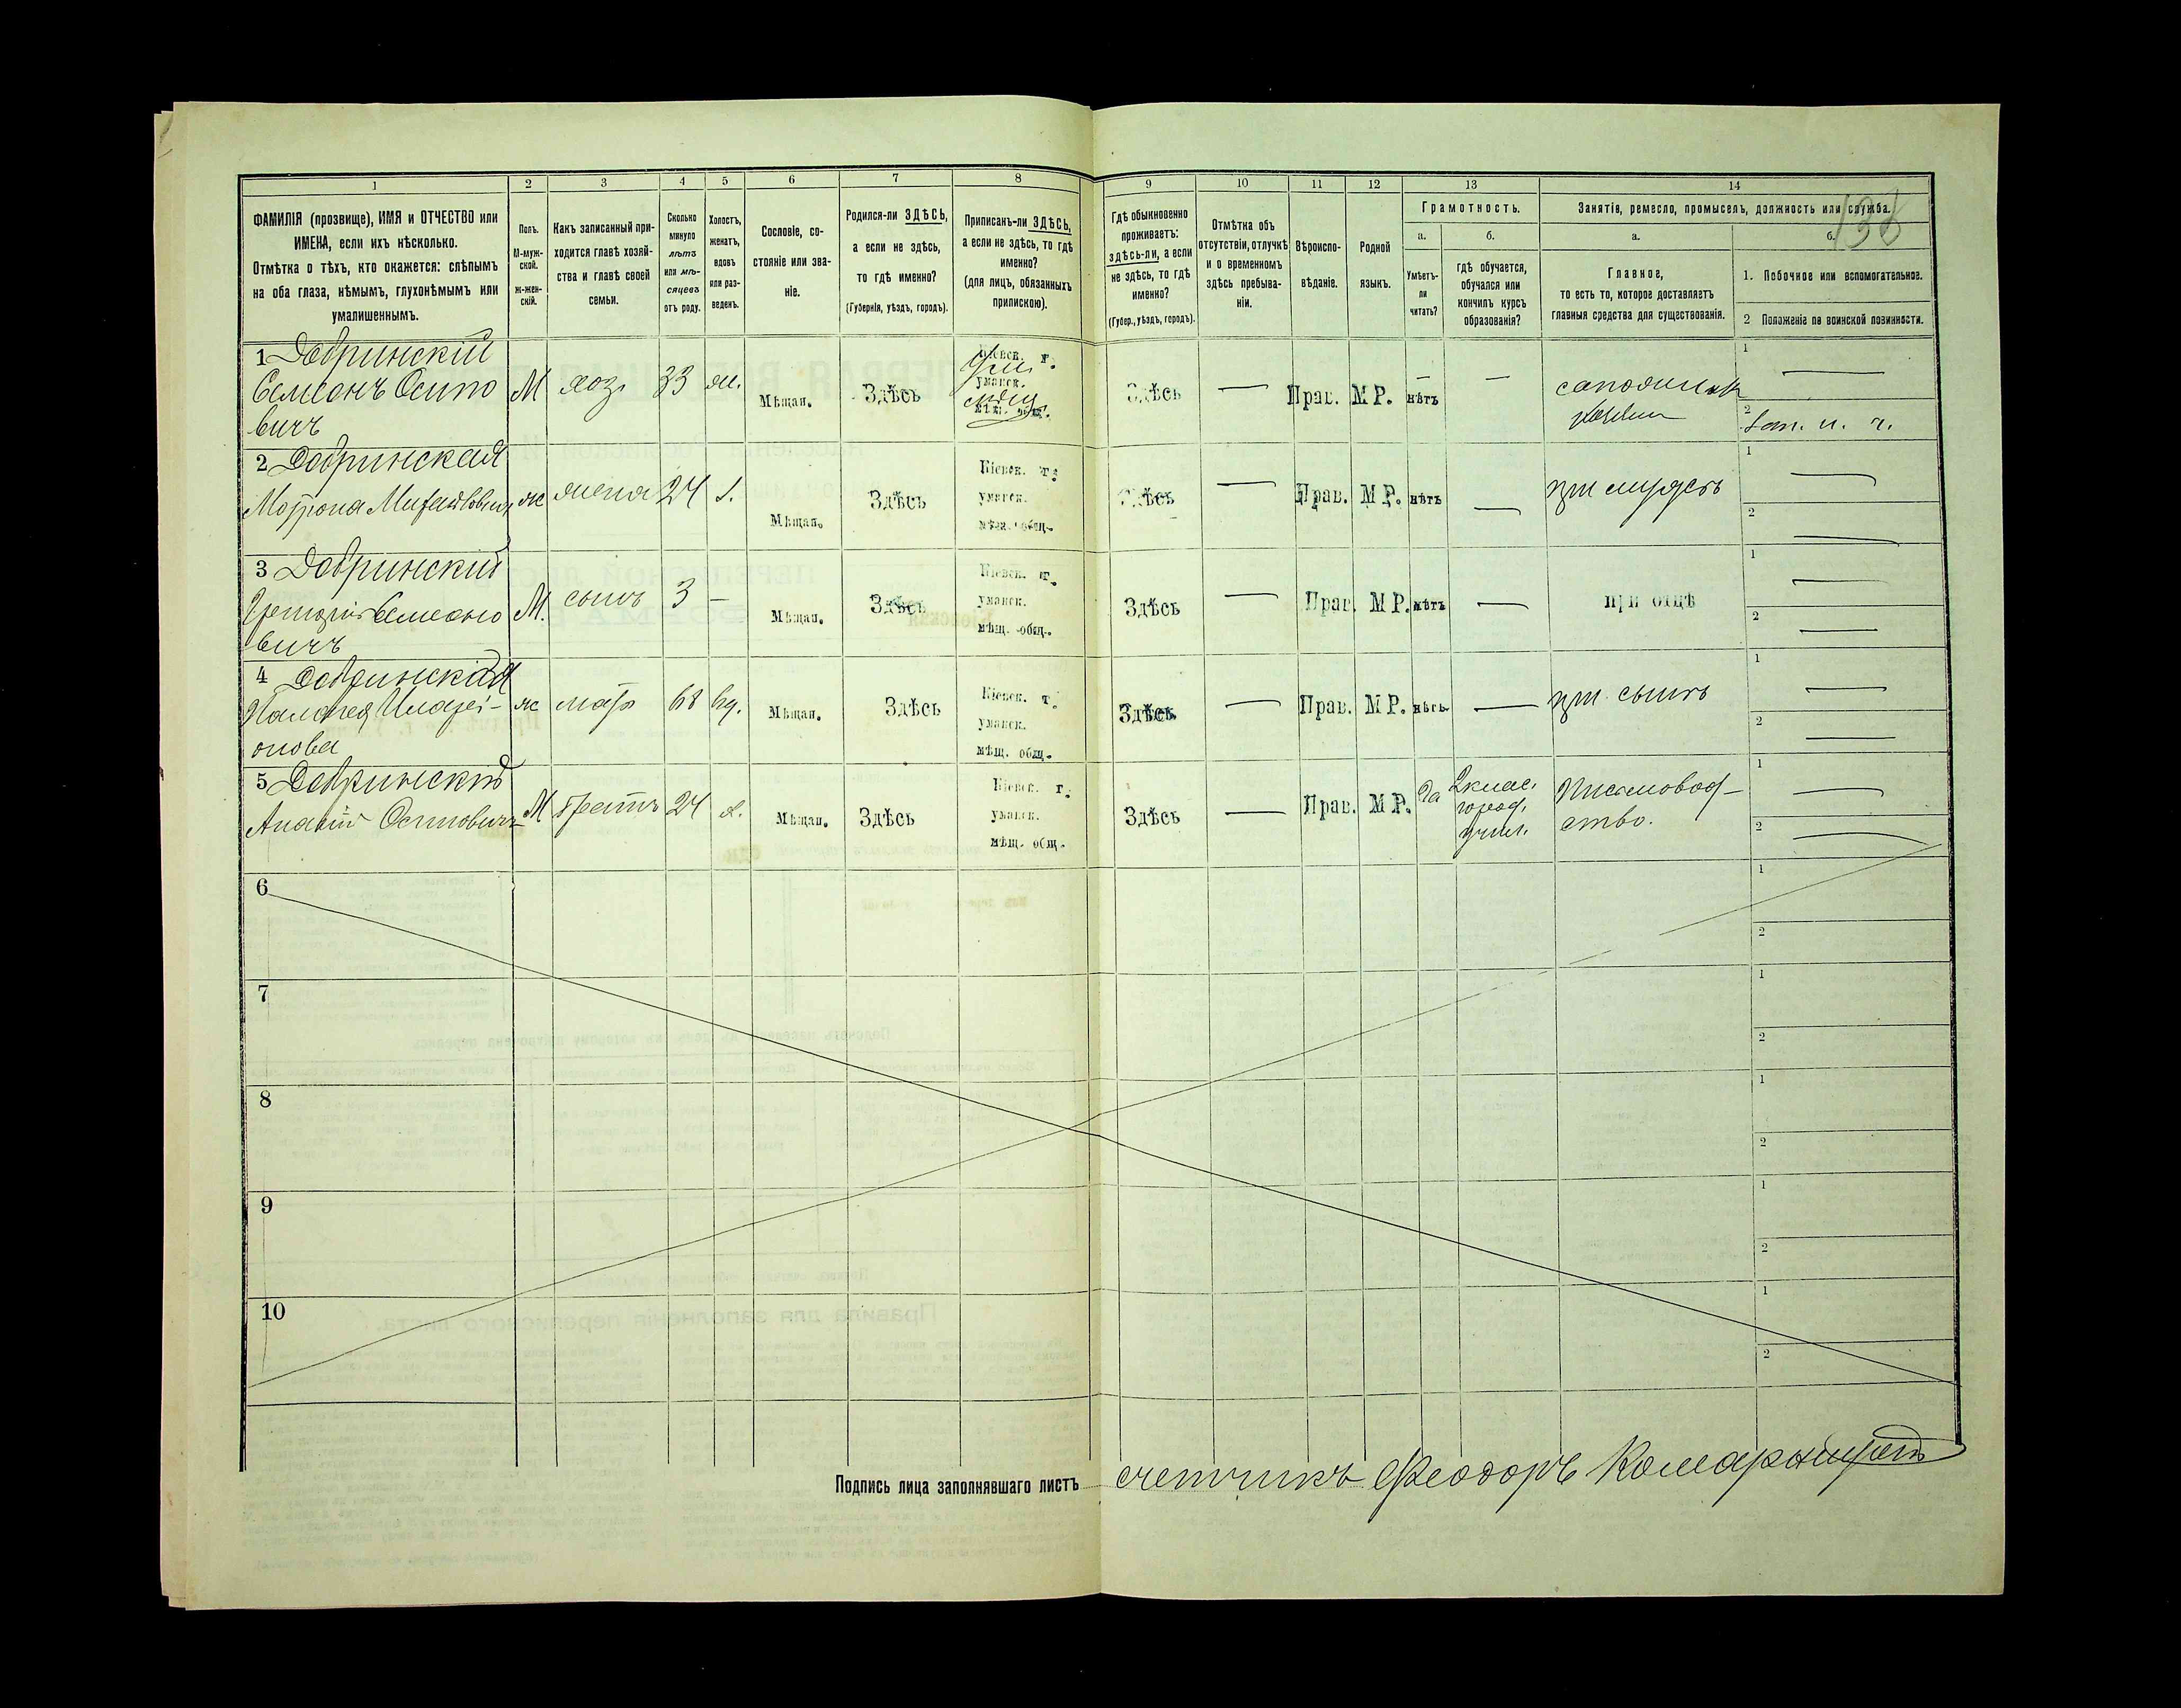 1
2
3
4
5
6
7
8
9
10
11
12
13
14
138
ФАМИЛІЯ (прозвище), ИМЯ и ОТЧЕСТВО или
ИМЕНА, если ихъ нѣсколько.
Отмѣтка о тѣхъ, кто окажется: слѣпымъ
на оба глаза, нѣмымъ, глухонѣмымъ или
умалишеннымъ.
Полъ.
М-муж-
ской.
ж-жен-
скій.
Какъ записанный при-
ходится главѣ хозяй-
ства и главѣ своей
семьи.
Сколько
минуло
лѣтъ
или мѣ-
сяцевъ
отъ роду.
Холостъ,
женатъ,
вдовъ
или раз-
веденъ.
Сословіе, со-
стояніе или зва-
ніе.
Родился-ли ЗДѢСЬ,
а если не здѣсь,
то гдѣ именно?
(Губернія, уѣздъ, городъ).
Приписанъ-ли ЗДѢСЬ,
а если не здѣсь, то гдѣ
именно?
(для лицъ, обязанныхъ
припискою).
Гдѣ обыкновенно
проживаетъ:
здѣсь-ли, а если
не здѣсь, то гдѣ
именно?
(Губер., уѣздъ, городъ).
Отмѣтка объ
отсутствіи, отлучкѣ
и о временномъ
здѣсь пребыва-
ніи.
Вѣроиспо-
вѣданіе.
Родной
языкъ.
Грамотность.
а.
Умѣетъ-
ли
читать?
б.
гдѣ обучается,
обучался или
кончилъ курсъ
образованія?
Занятія, ремесло, промыселъ, должность или служба.
а.
Главное,
то есть то, которое доставляетъ
главныя средства для существованія.
б.
1. Побочное или вспомогательное.
2 Положеніе по воинской повинности.
1 Добринскій
Семеонъ Осипо
вичъ
М
хоз.
33
ж.
Мѣщан.
Здѣсь
Кіевск. г.
уманск.
мѣщ. общ.
Здѣсь
—
Прав.
М Р.
нѣтъ
—
сапожник
1 —
2
2 Добринская
ж
жена
24
з.
Мѣщан.
Здѣсь
Кіевск. г.
уманск.
мѣщ. общ.
Здѣсь
—
Прав.
М Р.
нѣтъ
—
при мужѣ
1 —
2 —
3 Добринскій
Григорій Семеоно
вичъ
М.
сынъ
3
—
Мѣщан.
Здѣсь
Кіевск. г.
уманск.
мѣщ. общ.
Здѣсь
—
Прав.
М Р.
нѣтъ
—
при отцѣ
1 —
2 —
4 Добринская
ж
мать
68
вд.
Мѣщан.
Здѣсь
Кіевск. г.
уманск.
мѣщ. общ.
Здѣсь
—
Прав.
М Р.
нѣтъ
—
при сынѣ
1 —
2 —
5 Добринскій
Осиповичъ
М
братъ
24
х.
Мѣщан.
Здѣсь
Кіевск. г.
уманск.
мѣщ. общ.
Здѣсь
—
Прав.
М Р.
Да
2 клас.
город.
учил.
Письмовод-
ство.
1 —
2 —
6
1
2
7
1
2
8
1
2
9
1
2
10
1
2
Подпись лица заполнявшаго листъ счетчикъ Феодоръ